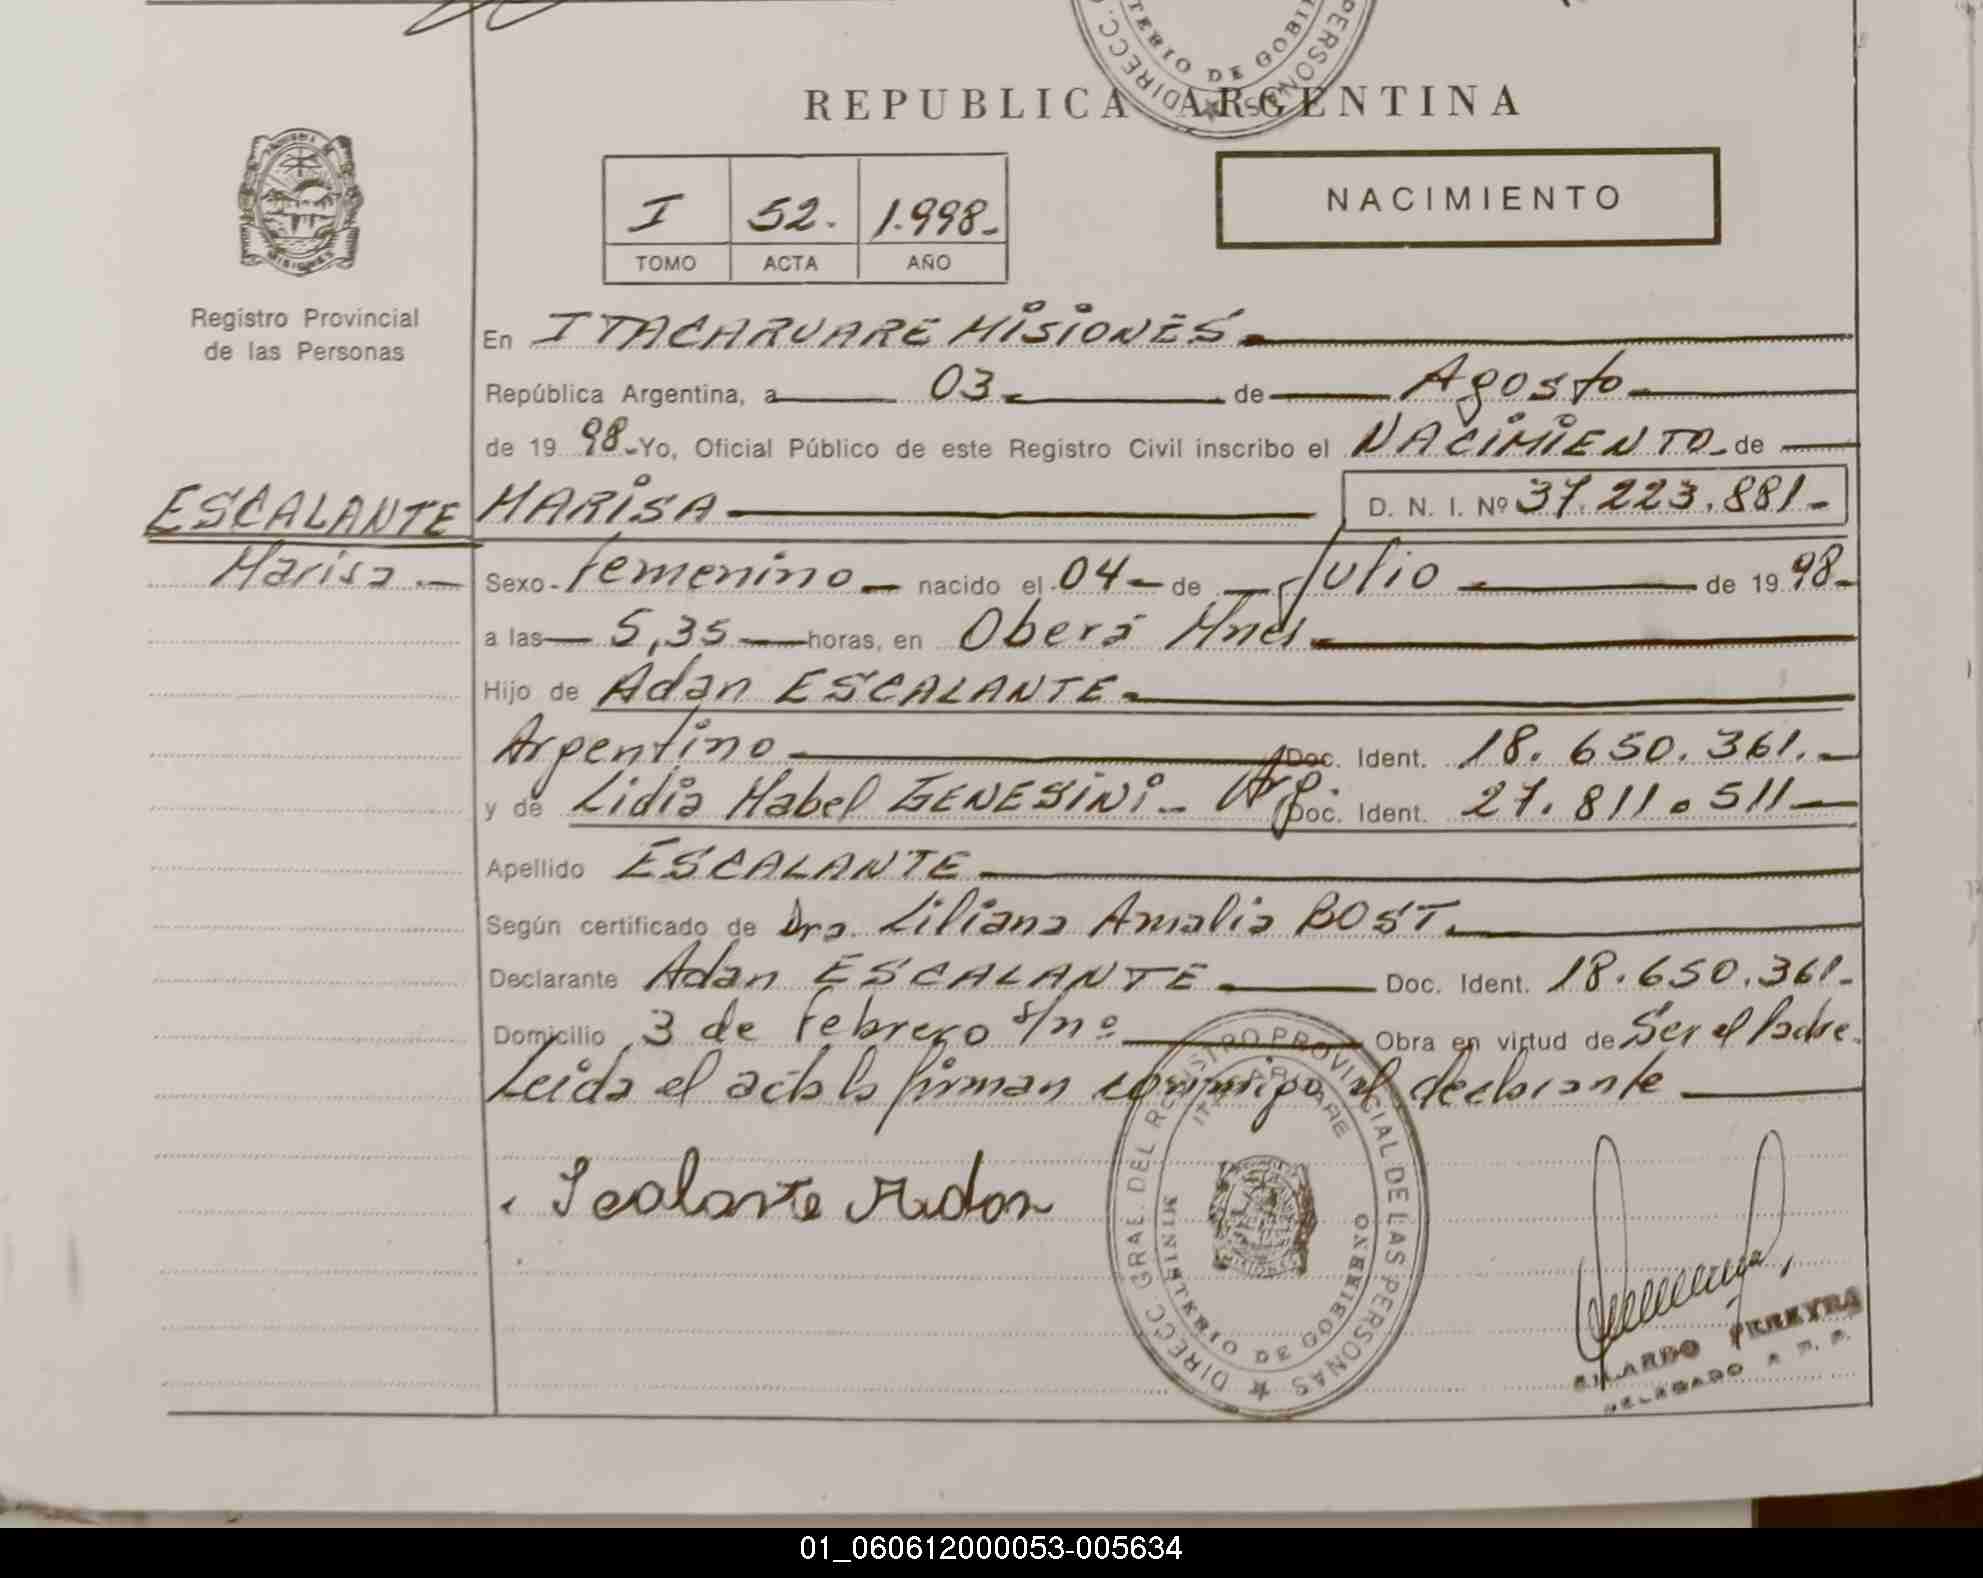 REPUBLICA ARGENTINA
NACIMIENTO
I 52. 1.998-
TOMO ACTA AÑO
MISIONES
Registro Provincial
de las Personas
En ITACARUARE MISIONES.
República Argentina, a 03 de Agosto
de 19 98 Yo, Oficial Público de este Registro Civil inscribo el NACIMIENTO de
ESCALANTE MARISA D. N. I. Nº 37.223.881-
Marisa.- Sexo Femenino nacido el 04 de Julio de 19 98-
a las 5,35 horas, en Oberá Mnes
Hijo de Adan ESCALANTE
Argentino Doc. Ident. 18.650.361.-
y de Lidia Mabel GENESINI- Arg. Doc. Ident. 27.811.511-
Apellido ESCALANTE
Según certificado de Dra. Liliana Amalia BOST.
Declarante Adan ESCALANTE Doc. Ident. 18.650.361-
Domicilio 3 de Febrero s/nº Obra en virtud de Ser el Padre.
Leida el acta la firman conmigo el declarante
Escalante Adan
DIRECC. GRAL. DEL REGISTRO PROVINCIAL DE LAS PERSONAS
ITACARUARE
MINISTERIO DE GOBIERNO
PEREYRA
DELEGADO
01_060612000053-005634